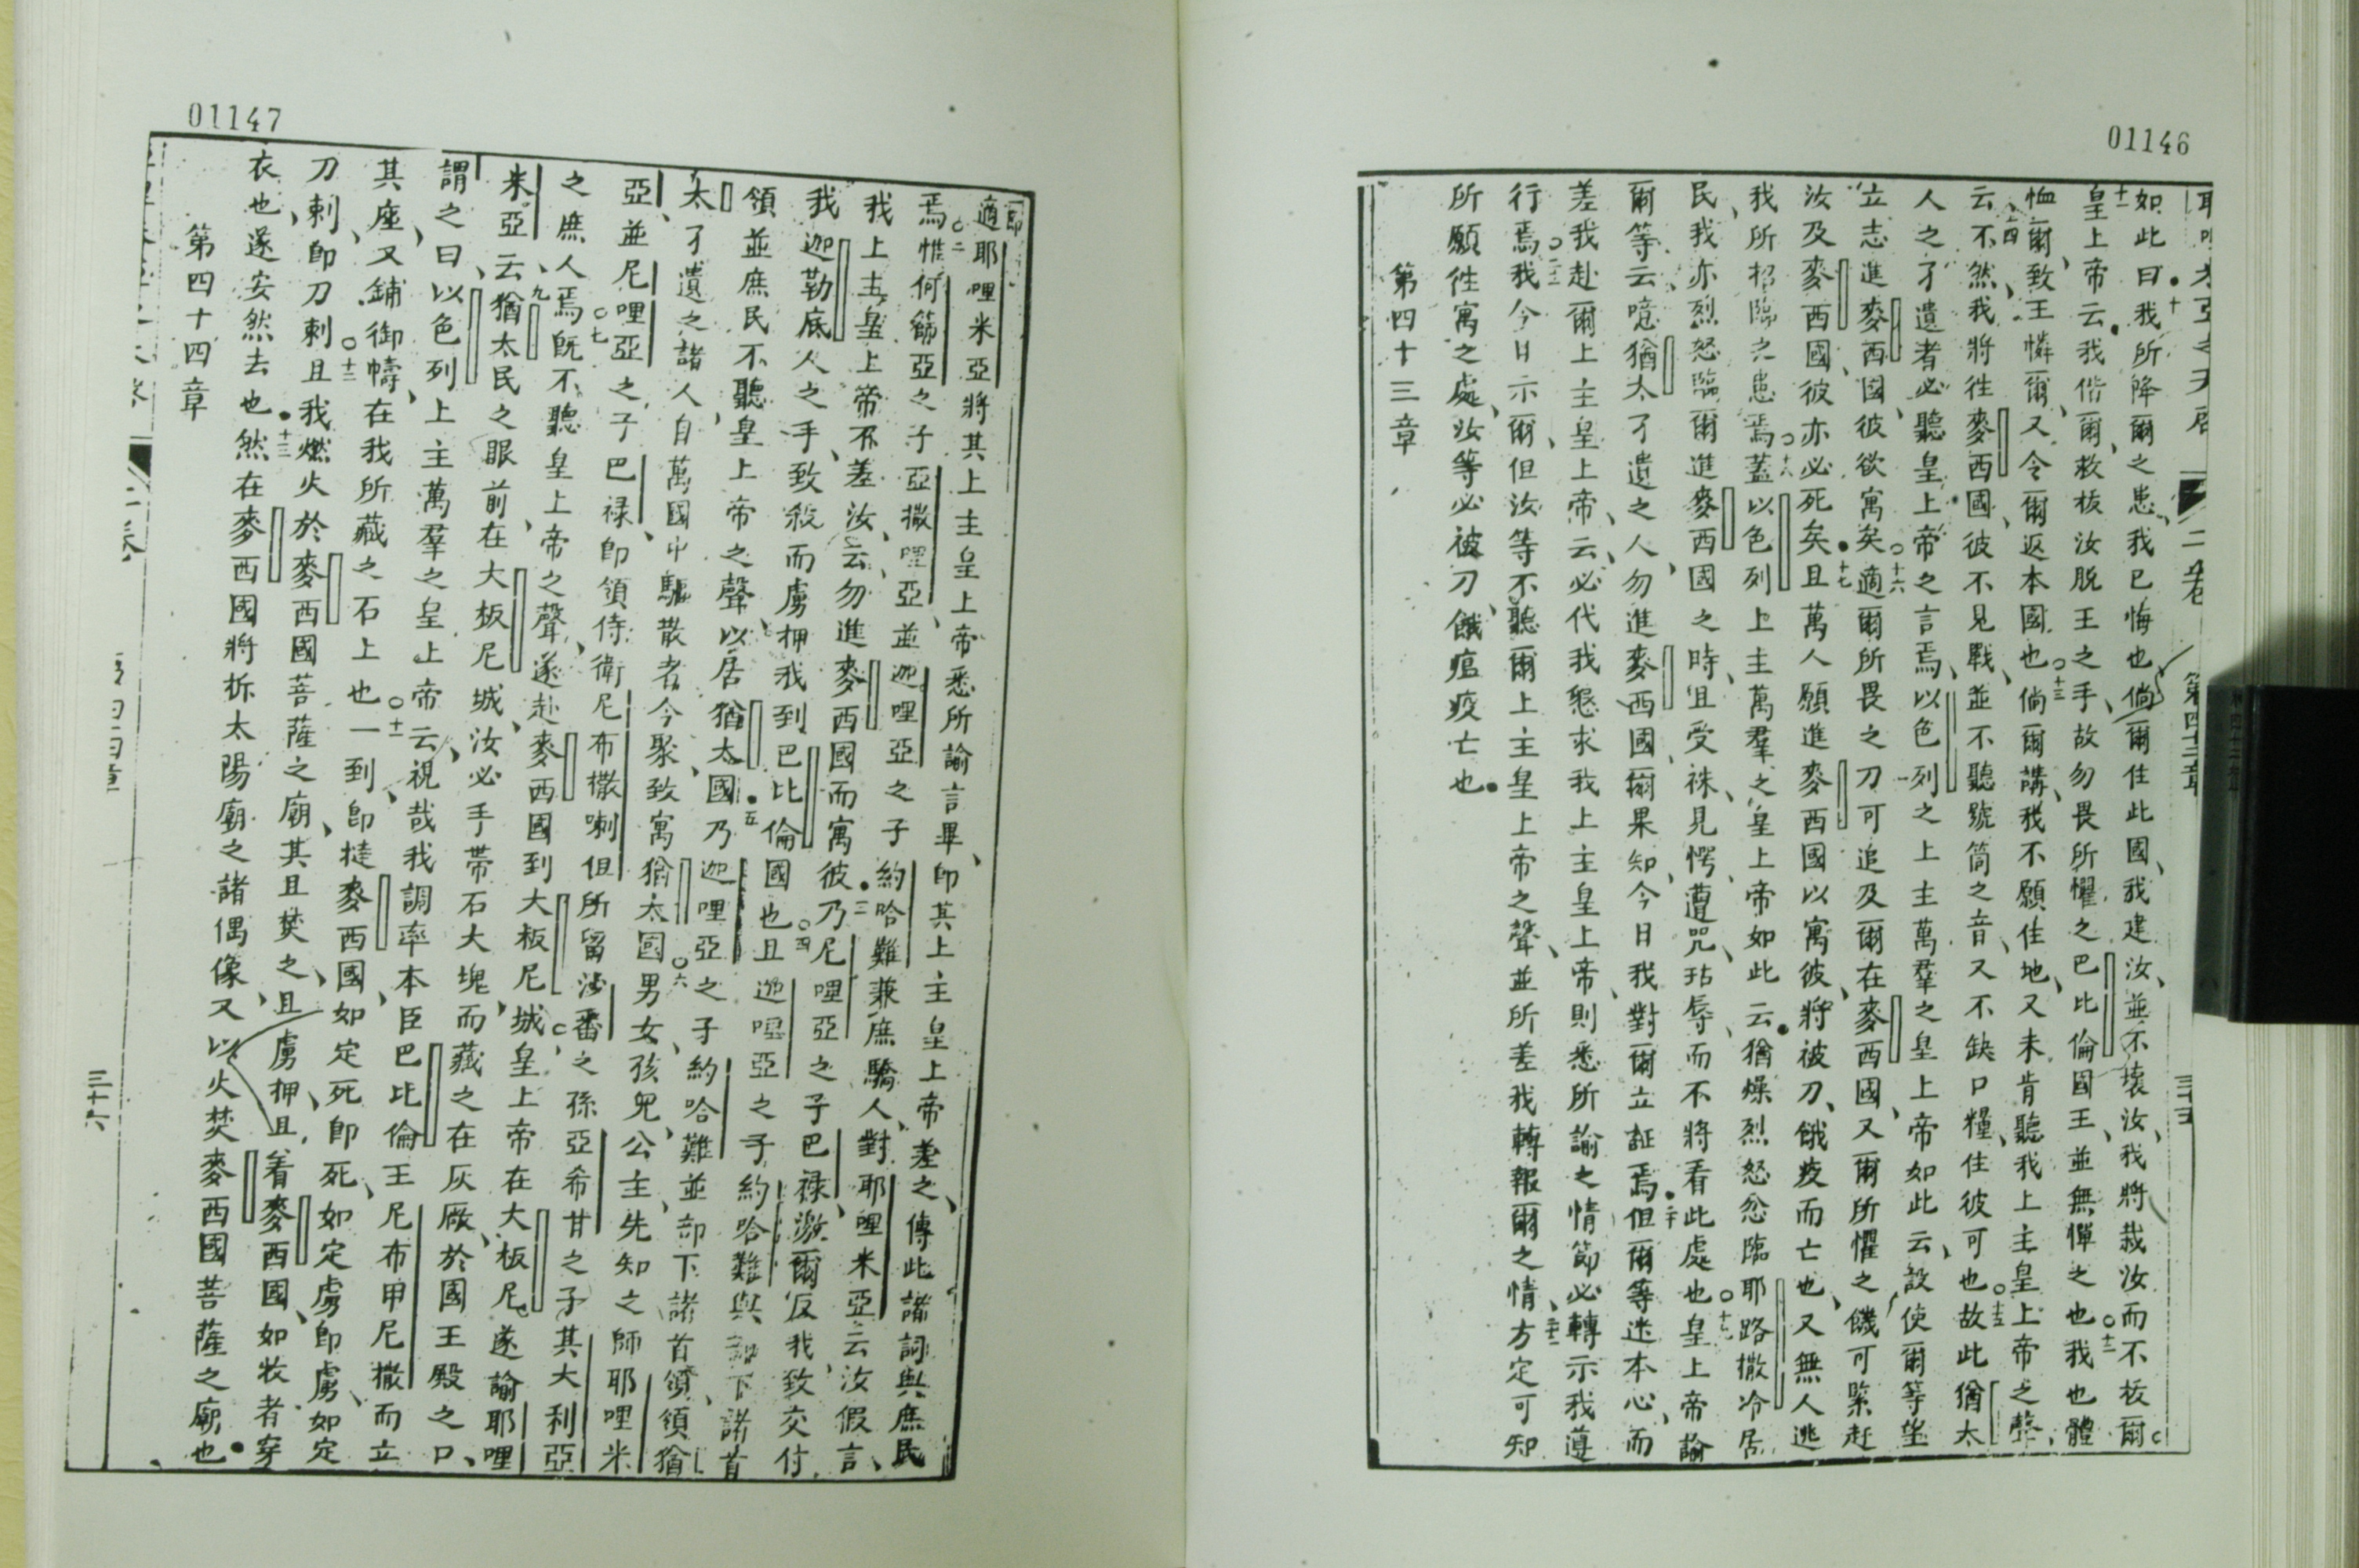 01146
二卷
第四十三章
三十五
如此曰我所降爾之患我已悔也倘爾住此國我建汝並不壞汝我將栽汝而不拔爾
十一
皇上帝云我偕爾救拔汝脫王之手故勿畏所懼之巴比倫國王並無憚之也我也體
十二
恤爾致王憐爾又令爾返本國也倘爾講我不願住地又未肯聽我上主皇上帝之聲
十三
云不然我將徃麥西國彼不見戰並不聽號筒之音又不缺口糧住彼可也故此猶太
十四
十五
人之孑遺者必聽皇上帝之言焉以色列之上主萬羣之皇上帝如此云設使爾等望
立志進麥西國彼欲寓矣適爾所畏之刀可追及爾在麥西國又爾所懼之饑可緊赶
十六
汝及麥西國彼亦必死矣且萬人願進麥西國以寓彼將被刀餓疫而亡也又無人逃
十七
我所招臨之患焉蓋以色列上主萬羣之皇上帝如此云猶燥烈怒忿臨耶路撒冷居
十八
民我亦烈怒臨爾進麥西國之時且受袾見愕遭咒玷辱而不將看此處也皇上帝諭
十九
爾等云噫猶太孑遺之人勿進麥西國爾果知今日我對爾立証焉但爾等迷本心而
二十
差我赴爾上主皇上帝云必代我懇求我上主皇上帝則悉所諭之情節必轉示我遵
行焉我今日示爾但汝等不聽爾上主皇上帝之聲並所差我轉報爾之情方定可知
所願徃寓之處汝等必被刀餓瘟疫亡也
第四十三章
01147
適耶哩米亞將其上主皇上帝悉所諭言畢即其上主皇上帝差之傳此諸詞與庶民
焉惟何篩亞之子亞撒哩亞並迦哩亞之子約哈難兼庶驕人對耶哩米亞云汝假言
二
我上主皇上帝不差汝云勿進麥西國而寓彼乃尼哩亞之子巴祿激爾反我致交付
三
我迦勒底人之手致殺而虜押我到巴比倫國也且迦哩亞之子約哈難與部下諸首
四
領並庶民不聽皇上帝之聲以居猶太國乃迦哩亞之子約哈難並部下諸首領領猶
五
太孑遺之諸人自萬國中驅散者今聚致寓猶太國男女孩兒公主先知之師耶哩米
六
亞並尼哩亞之子巴祿即領侍衛尼布撒喇但所留沙番之孫亞希甘之子其大利亞
之庶人焉既不聽皇上帝之聲遂赴麥西國到大板尼城皇上帝在大板尼遂諭耶哩
七
米亞云猶太民之眼前在大板尼城汝必手帶石大塊而藏之在灰厰於國王殿之口
九
謂之曰以色列上主萬羣之皇上帝云視哉我調率本臣巴比倫王尼布甲尼撒而立
其座又鋪御幬在我所藏之石上也一到即撻麥西國如定死即死如定虜即虜如定
十一
刀刺即刀刺且我燃火於麥西國菩薩之廟其且焚之且虜押且着麥西國如牧者穿
十二
衣也遂安然去也然在麥西國將拆太陽廟之諸偶像又以火焚麥西國菩薩之廟也
十三
第四十四章
二卷
三十六